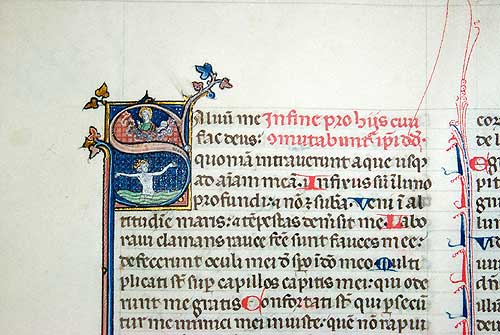 Saluū me In fine pro hijs qui
fac deus: ɔmutabunt᷑ ip̄i dd̄.
quoniā intrauerunt aque usq̨
ad aīam meā. Infixus sū ī limo
profundi: ⁊ nō ē suba. Veni ī al
titudiē maris: ⁊ tēpestas dem̄sit me. Labo
raui clamans rauce fc̄e sunt fauces mee:
defecerunt oculi mei dō sp̄o ī dō meō. Multi
plicati st̄ sup̄ capillos capitis mei: qui ode
runt me gratis. Confortati st̄ qui p̄secu
ti sūt me inimici mei iniuste: que nō rapui
cor
de l